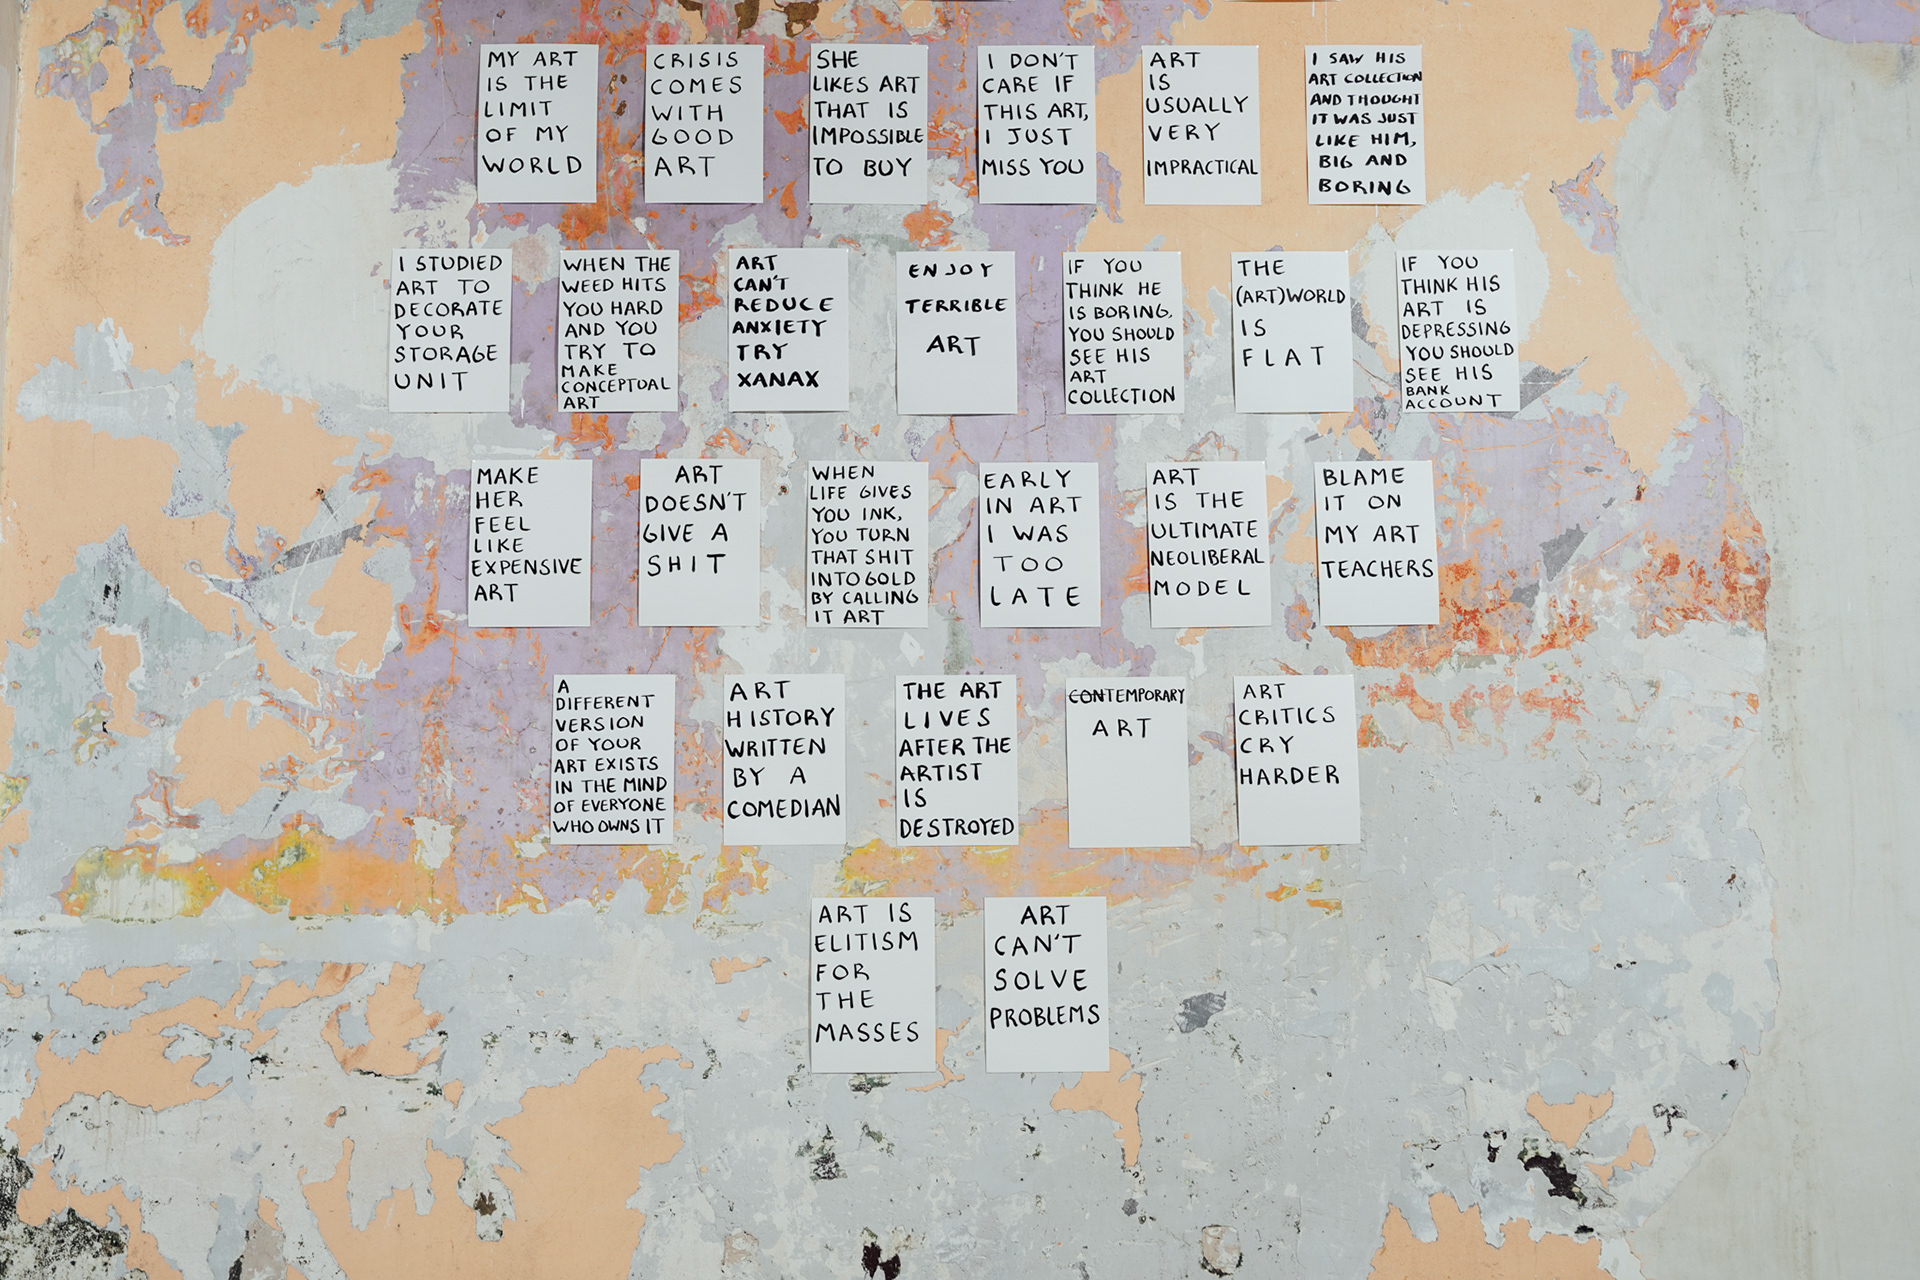 MY ART
IS THE
LIMIT
OF MY
WORLD
CRISIS
COMES
WITH
GOOD
ART
SHE
LIKES ART
THAT IS
IMPOSSIBLE
TO BUY
I DON'T
CARE IF
THIS ART,
I JUST
MISS YOU
ART
IS
USUALLY
VERY
IMPRACTICAL
I SAW HIS
ART COLLECTION
AND THOUGHT
IT WAS JUST
LIKE HIM,
BIG AND
BORING
I STUDIED
ART TO
DECORATE
YOUR
STORAGE
UNIT
WHEN THE
WEED HITS
YOU HARD
AND YOU
TRY TO
MAKE
CONCEPTUAL
ART
ART
CAN'T
REDUCE
ANXIETY
TRY
XANAX
ENJOY
TERRIBLE
ART
IF YOU
THINK HE
IS BORING,
YOU SHOULD
SEE HIS
ART
COLLECTION
THE
(ART)WORLD
IS
FLAT
IF YOU
THINK HIS
ART IS
DEPRESSING
YOU SHOULD
SEE HIS
BANK
ACCOUNT
MAKE
HER
FEEL
LIKE
EXPENSIVE
ART
ART
DOESN'T
GIVE A
SHIT
WHEN
LIFE GIVES
YOU INK,
YOU TURN
THAT SHIT
INTO GOLD
BY CALLING
IT ART
EARLY
IN ART
I WAS
TOO
LATE
ART
IS THE
ULTIMATE
NEOLIBERAL
MODEL
BLAME
IT ON
MY ART
TEACHERS
A
DIFFERENT
VERSION
OF YOUR
ART EXISTS
IN THE MIND
OF EVERYONE
WHO OWNS IT
ART
HISTORY
WRITTEN
BY A
COMEDIAN
THE ART
LIVES
AFTER THE
ARTIST
IS
DESTROYED
CONTEMPORARY
ART
ART
CRITICS
CRY
HARDER
ART IS
ELITISM
FOR
THE
MASSES
ART
CAN'T
SOLVE
PROBLEMS